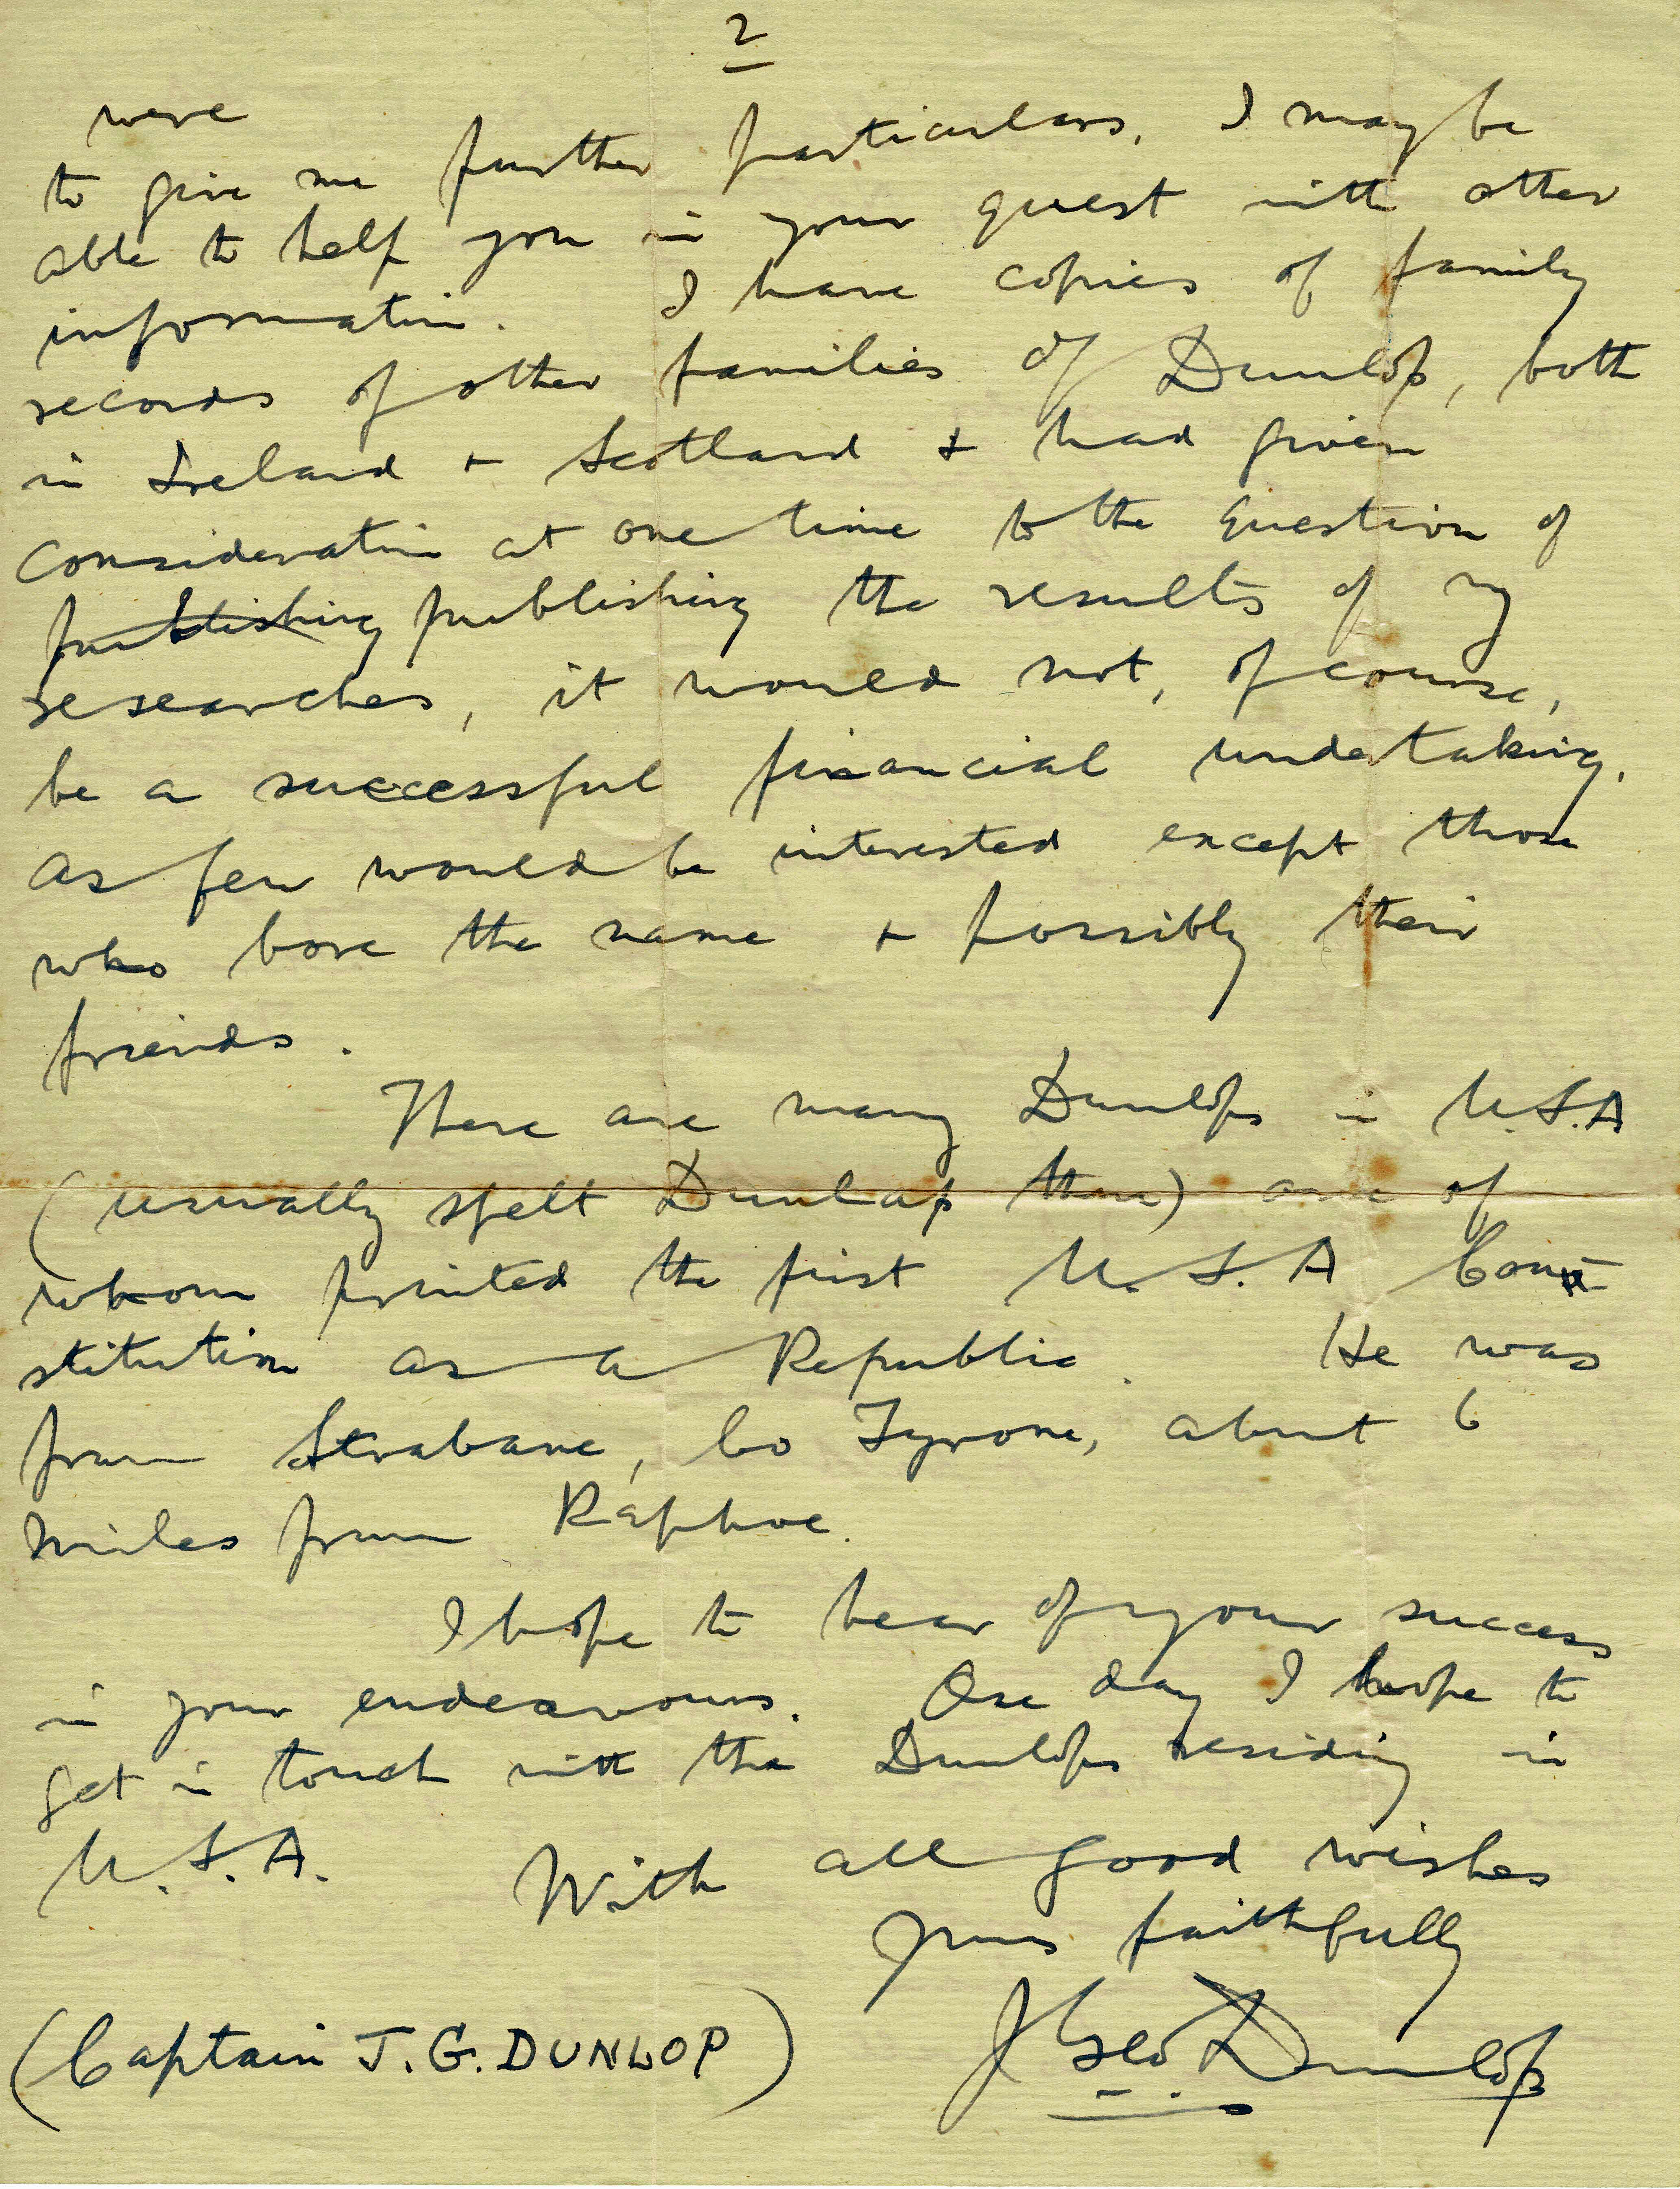 2
were
to give me further particulars, I may be
able to help you in your quest with other
information. I have copies of family
records of other families of Dunlop, both
in Ireland + Scotland + had given
consideration at one time to the question of
publishing publishing the results of my
researches, it would not, of course,
be a successful financial undertaking,
as few would be interested except those
who bore the name + possibly their
friends.
There are many Dunlops in U.S.A
(usually spelt Dunlap there) one of
whom printed the first U.S.A Con-
stitution as a Republic. He was
from Strabane, Co Tyrone, about 6
miles from Raphoe.
I hope to hear of your success
in your endeavours. One day I hope to
get in touch with the Dunlops residing in
U.S.A. With all good wishes
yours faithfully
(Captain J.G. DUNLOP) J Geo Dunlop